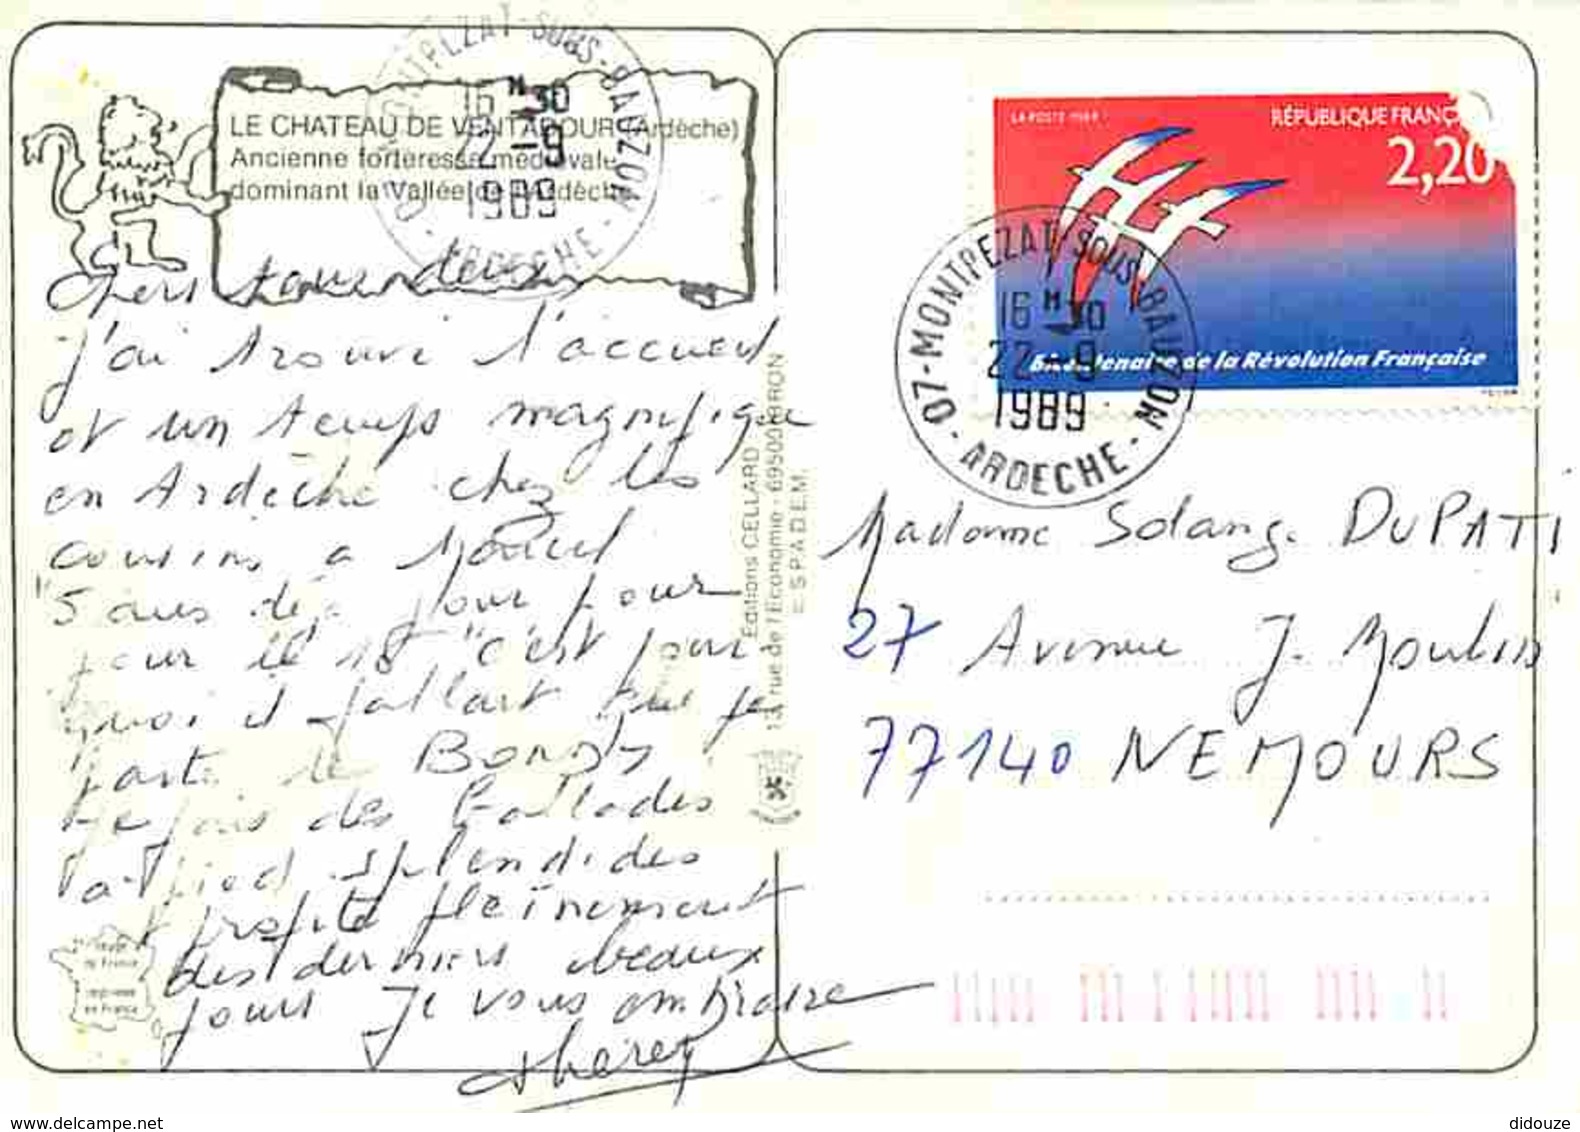 LE CHATEAU DE VENTADOUR (Ardèche)
Ancienne forteresse médiévale
dominant la Vallée de l'Ardèche
07-MONTPEZAT-SOUS-BAUZON
ARDECHE
16 H 30
22-9
1989
Chers tous deux
j'ai trouvé l'accueil
et un temps magnifique
en Ardèche chez les
cousins a
5 ans déjà jour pour
jour c'est pour
quoi il fallait que je
parte de BONDY
Je fais des ballades
a pied splendides
profite pleinement
des derniers beaux
jours Je vous embrasse
Editions CELLARD
13, rue de l'Economie - 69500 BRON
S.P.A.D.E.M.
LA POSTE 1989
RÉPUBLIQUE FRANÇ
2,20
Bicentenaire de la Révolution Française
07-MONTPEZAT-SOUS-BAUZON
ARDECHE
16 H 30
22-9
1989
Madame Solange DUPATI
27 Avenue J. Moulin
77140 NEMOURS
www.delcampe.net
didouze